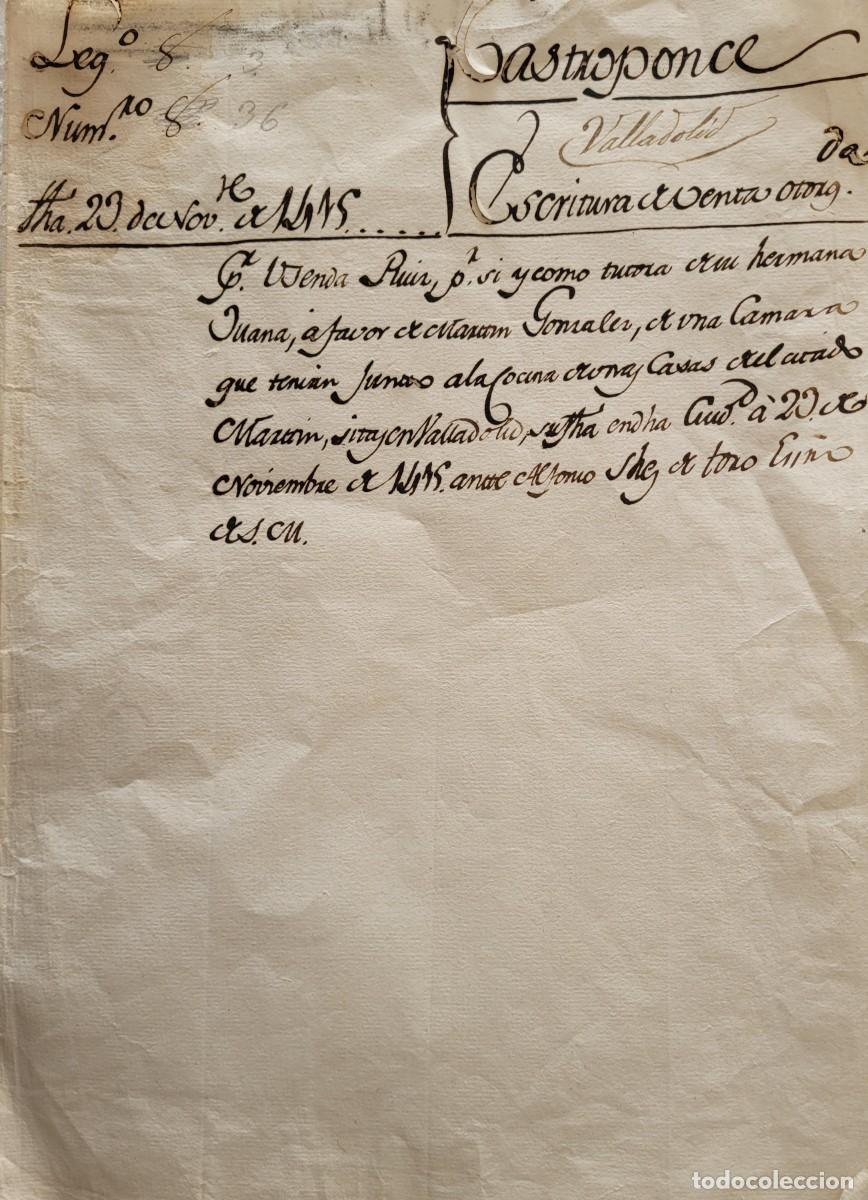 Leg.º 8. 3
Castroponce
Num.ro 8. 36
Valladolid
fha. 23. de Nov.re de 1415......
Escritura de venta otorg.da
p.r Ruiz, p.r si y como tutora de su hermana
Juana, á favor de Martin Gonzalez, de una Camara
que tenian junto a la Cocina de unas Casas del citado
Martin, sitas en Valladolid, su fha en dha Ciud.d à 23. de
Noviembre de 1415. ante Alfonso Shez de toro Essno
de S. M.
todocoleccion